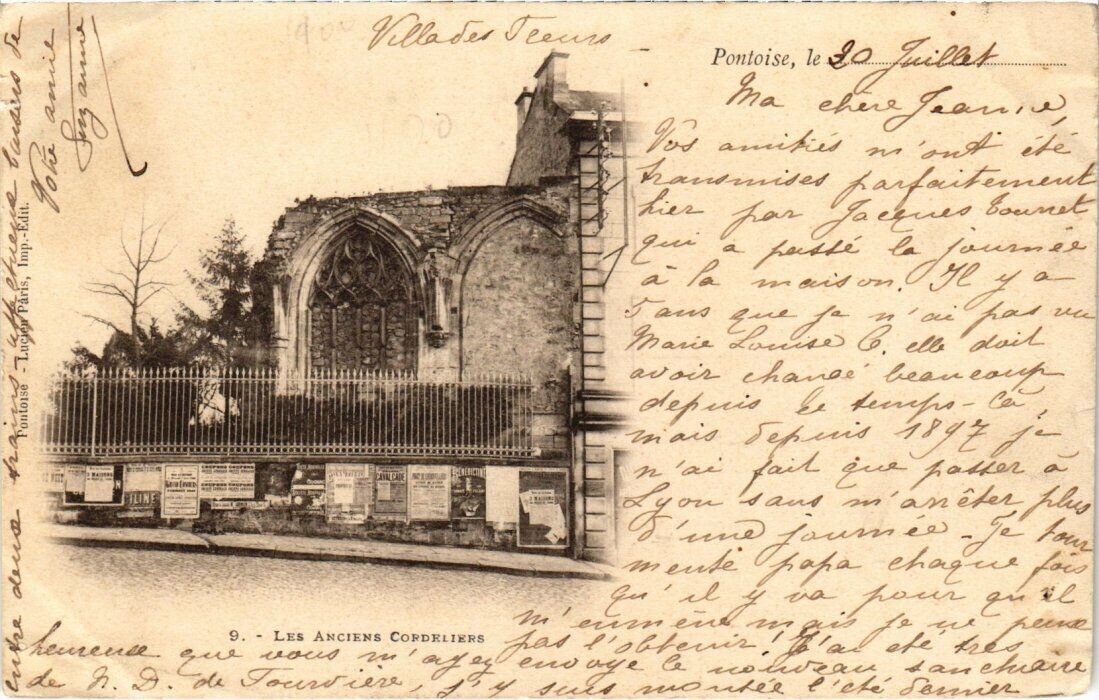 Villa des Fleurs
Pontoise, le 20 Juillet
Ma chère Jeanne,
Vos amitiés m'ont été
transmises parfaitement
hier par Jacques Tourret
qui a passé la journée
à la maison. Il y a
7 ans que je n'ai pas vu
Marie Louise C. elle doit
avoir changé beaucoup
depuis ce temps-là,
mais depuis 1897 je
n'ai fait que passer à
Lyon sans m'arrêter plus
d'une journée - Je tour
mente papa chaque fois
qu'il y va pour qu'il
m'emmène mais je ne peux
pas l'obtenir! J'ai été très
heureuse que vous m'ayez envoyé le nouveau sanctuaire
de N. D. de Fourvière, j'y suis montée l'été dernier
entre deux trains. Affectueux baisers de
Votre amie
Suzanne
9. - LES ANCIENS CORDELIERS
Pontoise - Lucien Pâris, Imp.-Edit.
CAVALCADE
BÉNÉDICTINE
1900